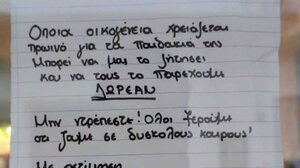 Οποια οικογένεια χρειάζεται
πρωινό για τα παιδάκια της
Μπορεί να μας το ζητήσει
και να τους το παρέχουμε
ΔΩΡΕΑΝ
Μην ντρέπεστε! Ολοι ξέρουμε
οτι ζούμε σε δυσκολους καιρους!
Με εκτίμηση